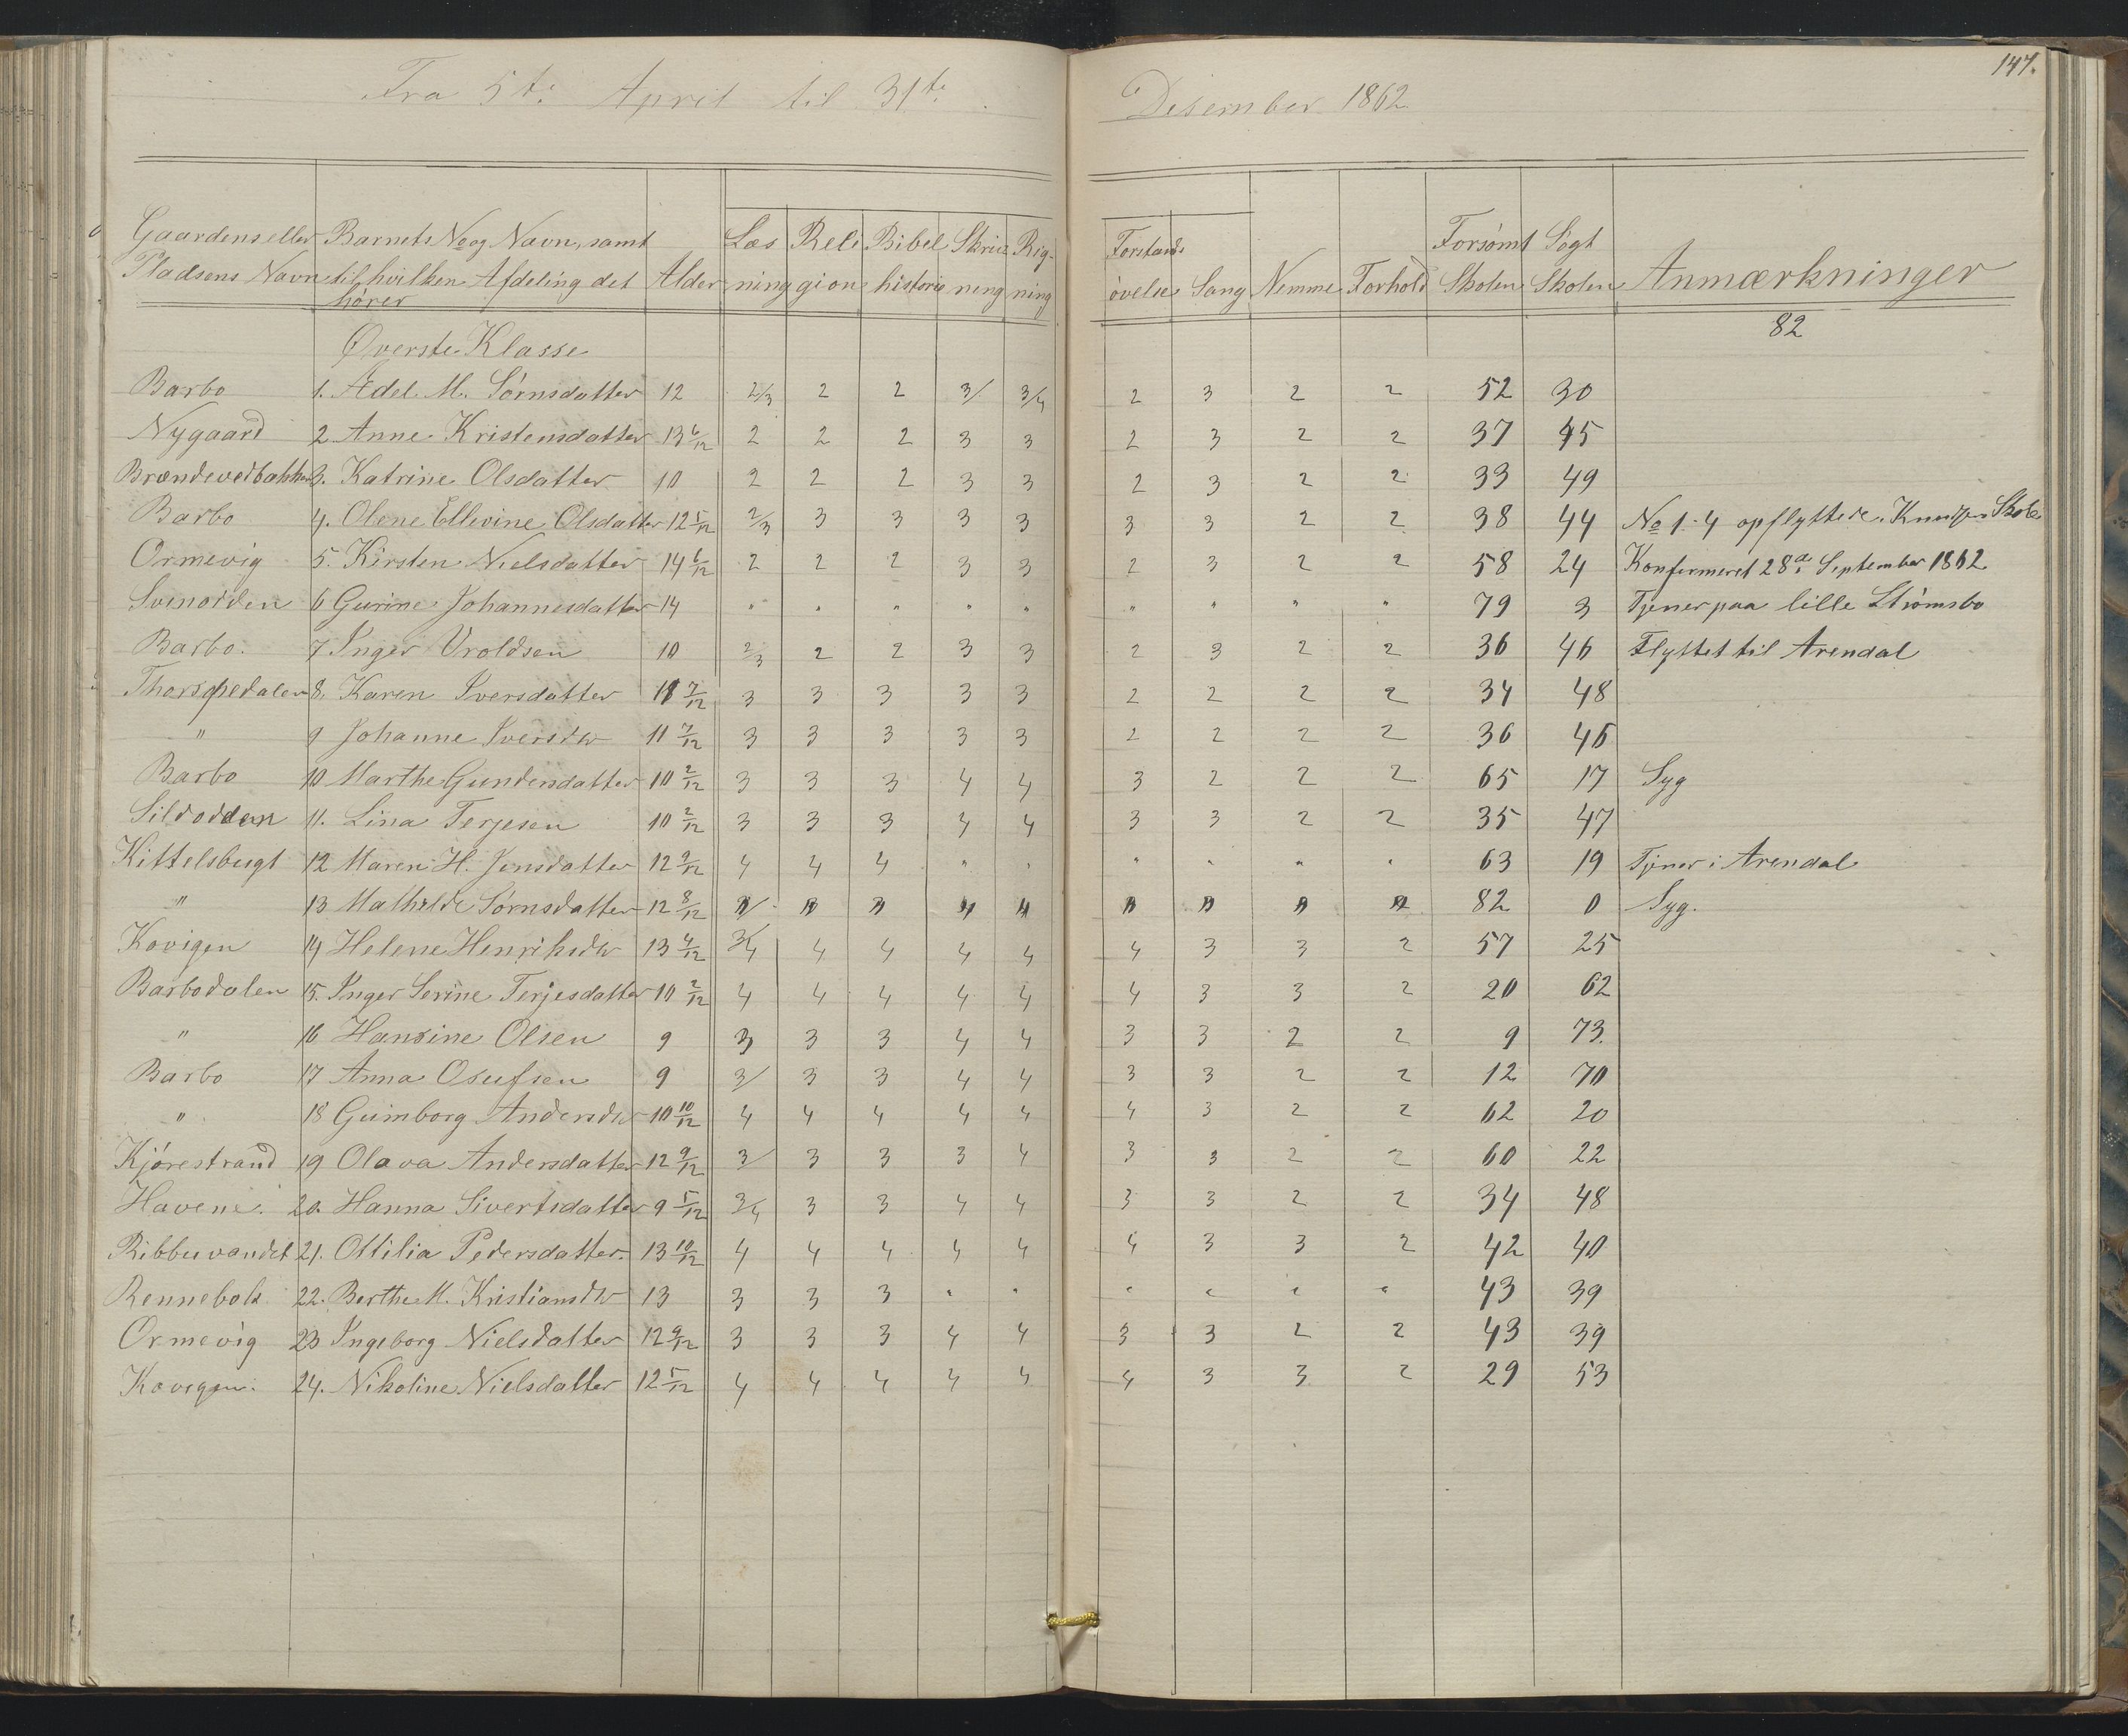 147.
Fra 5te April til 31te Desember 1862
Gaardens eller Pladsens Navn | Barnets No og Navn, samt til hvilken Afdeling det hører | Alder | Læsning | Religion | Bibelhistorie | Skrivning | Rigning | Forstandsøvelse | Sang | Nemme | Forhold | Forsømt Skolen | Søgt Skolen | Anmærkninger
Øverste Klasse | 82
Barbo | 1. Adel. M. Sörnsdatter | 12 | 2/3 | 2 | 2 | 3/ | 3/4 | 2 | 3 | 2 | 2 | 52 | 30
Nygaard | 2 Anne Kristensdatter | 13 6/12 | 2 | 2 | 2 | 3 | 3 | 2 | 3 | 2 | 2 | 37 | 45
Brændevedbakken | 3. Katrine Olsdatter | 10 | 2 | 2 | 2 | 3 | 3 | 2 | 3 | 2 | 2 | 33 | 49
Barbo | 4. Olene Ellevine Olsdatter | 12 5/12 | 2/3 | 3 | 3 | 3 | 3 | 3 | 3 | 2 | 2 | 38 | 44 | No 1-4 opflyttede Skole
Ormevig | 5. Kirsten Nielsdatter | 14 6/12 | 2 | 2 | 2 | 3 | 3 | 2 | 3 | 2 | 2 | 58 | 24 | Konfirmeret 28de September 1862
Svinodden | 6 Gurine Johannesdatter | 14 | " | " | " | " | " | " | " | " | " | 79 | 3 | Tjener paa lille Strömsbo
Barbo. | 7 Inger Uroldsen | 10 | 2/3 | 2 | 2 | 3 | 3 | 2 | 3 | 2 | 2 | 36 | 46 | Flyttet til Arendal
Thorskedalen | 8. Karen Iversdatter | 11 7/12 | 3 | 3 | 3 | 3 | 3 | 2 | 2 | 2 | 2 | 34 | 48
" | 9 Johanne Iversdtr | 11 7/12 | 3 | 3 | 3 | 3 | 3 | 2 | 2 | 2 | 2 | 36 | 46
Barbo | 10 Marthe Gundersdatter | 10 2/12 | 3 | 3 | 3 | 4 | 4 | 3 | 2 | 2 | 2 | 65 | 17 | Syg
Sildodden | 11. Lina Terjesen | 10 2/12 | 3 | 3 | 3 | 4 | 4 | 3 | 3 | 2 | 2 | 35 | 47
Kittelsbugt | 12 Maren H. Jensdatter | 12 9/12 | 4 | 4 | 4 | " | " | " | " | " | " | 63 | 19 | Tjener i Arendal
" | 13 Mathilde Sörnsdatter | 12 8/12 | " | " | " | " | " | " | " | " | " | 82 | 0 | Syg.
Kovigen | 14 Helene Henriksdtr | 13 4/12 | 3/4 | 4 | 4 | 4 | 4 | 4 | 3 | 3 | 2 | 57 | 25
Barbodalen | 15. Inger Serine Terjesdatter | 10 2/12 | 4 | 4 | 4 | 4 | 4 | 4 | 3 | 3 | 2 | 20 | 62
" | 16 Hansine Olsen | 9 | 3 | 3 | 3 | 4 | 4 | 3 | 3 | 2 | 2 | 9 | 73.
Barbo | 17 Anna Osufsen | 9 | 3/ | 3 | 3 | 4 | 4 | 3 | 3 | 2 | 2 | 12 | 70
" | 18 Guinborg Andersdtr | 10 10/12 | 4 | 4 | 4 | 4 | 4 | 4 | 3 | 2 | 2 | 62 | 20
Kjörestrand | 19 Olava Andersdatter | 12 9/12 | 3/ | 3 | 3 | 3 | 4 | 3 | 3 | 2 | 2 | 60 | 22
Havene. | 20. Hanna Sivertsdatter | 9 5/12 | 3/4 | 3 | 3 | 4 | 4 | 3 | 3 | 2 | 2 | 34 | 48
Ribbuvandet | 21. Ottilia Pedersdatter | 13 10/12 | 4 | 4 | 4 | 4 | 4 | 4 | 3 | 3 | 2 | 42 | 40
Rennebok | 22. Berthe M. Kristiansdtr | 13 | 3 | 3 | 3 | " | " | " | " | " | " | 43 | 39
Ormevig | 23 Ingeborg Nielsdatter | 12 9/12 | 3 | 3 | 3 | 4 | 4 | 3 | 3 | 2 | 2 | 43 | 39
Kovigen. | 24. Nikoline Nielsdatter | 12 5/12 | 4 | 4 | 4 | 4 | 4 | 4 | 3 | 3 | 2 | 29 | 53